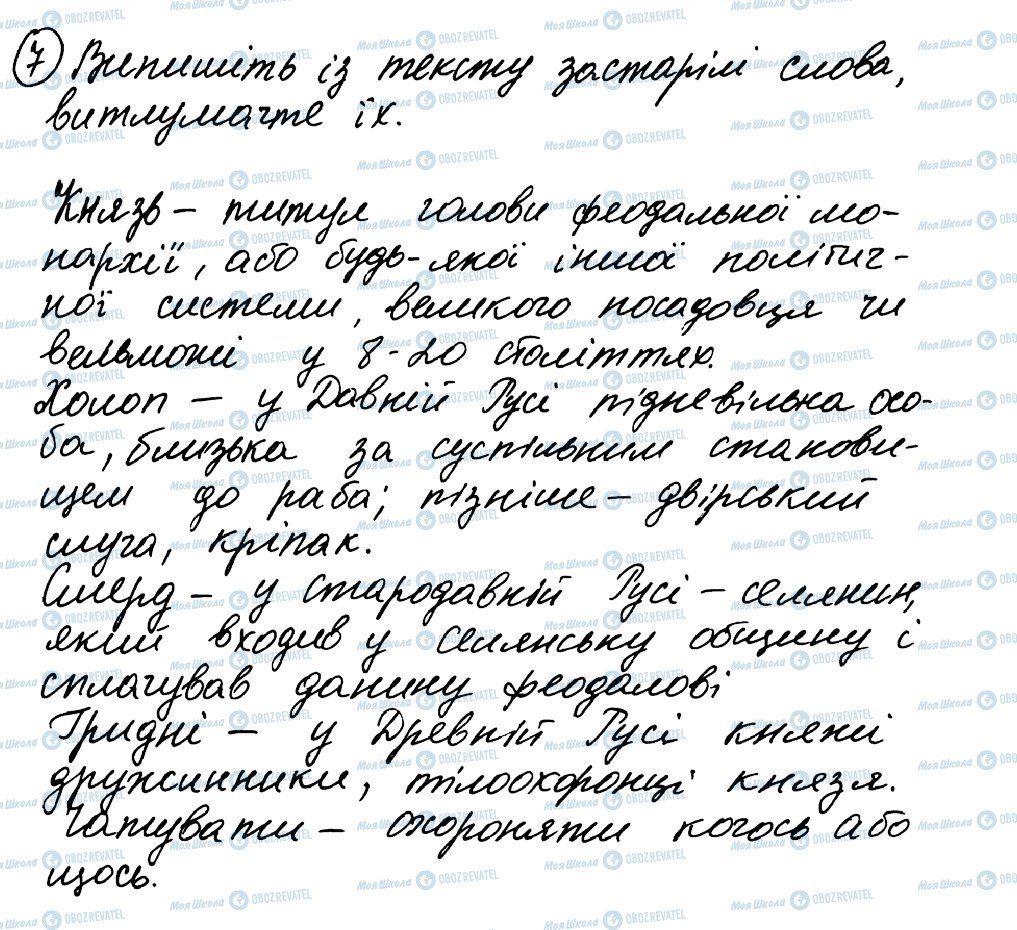 7 Випишіть із тексту застарілі слова,
витлумачте їх.
Князь – титул голови феодальної мо-
нархії, або будь-якої іншої політич-
ної системи, великого посадовця чи
вельможі у 8-20 століттях.
Холоп – у Давній Русі підневільна осо-
ба, близька за суспільним станови-
щем до раба; пізніше – двірський
слуга, кріпак.
Смерд – у стародавній Русі – селянин,
який входив у селянську общину і
сплачував данину феодалові
Гридні – у Древній Русі княжі
дружинники, тілоохоронці князя.
Чатувати – охороняти когось або
щось.